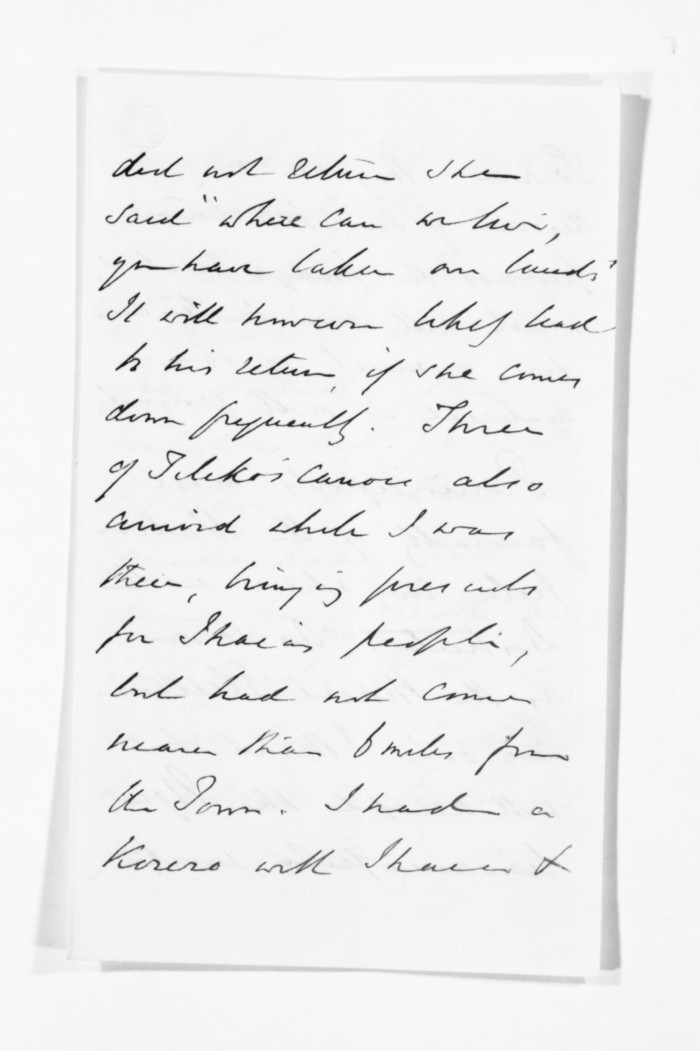 did not return she
said "where can we live,
you have taken our lands"
It will however likely lead
to his return, if she comes
down frequently. Three
of Titokos canoes also
arrived while I was
there, bringing presents
for Ihaias people,
but had not come
nearer than 6 miles from
the Town. I had a
Korero with Ihaia &